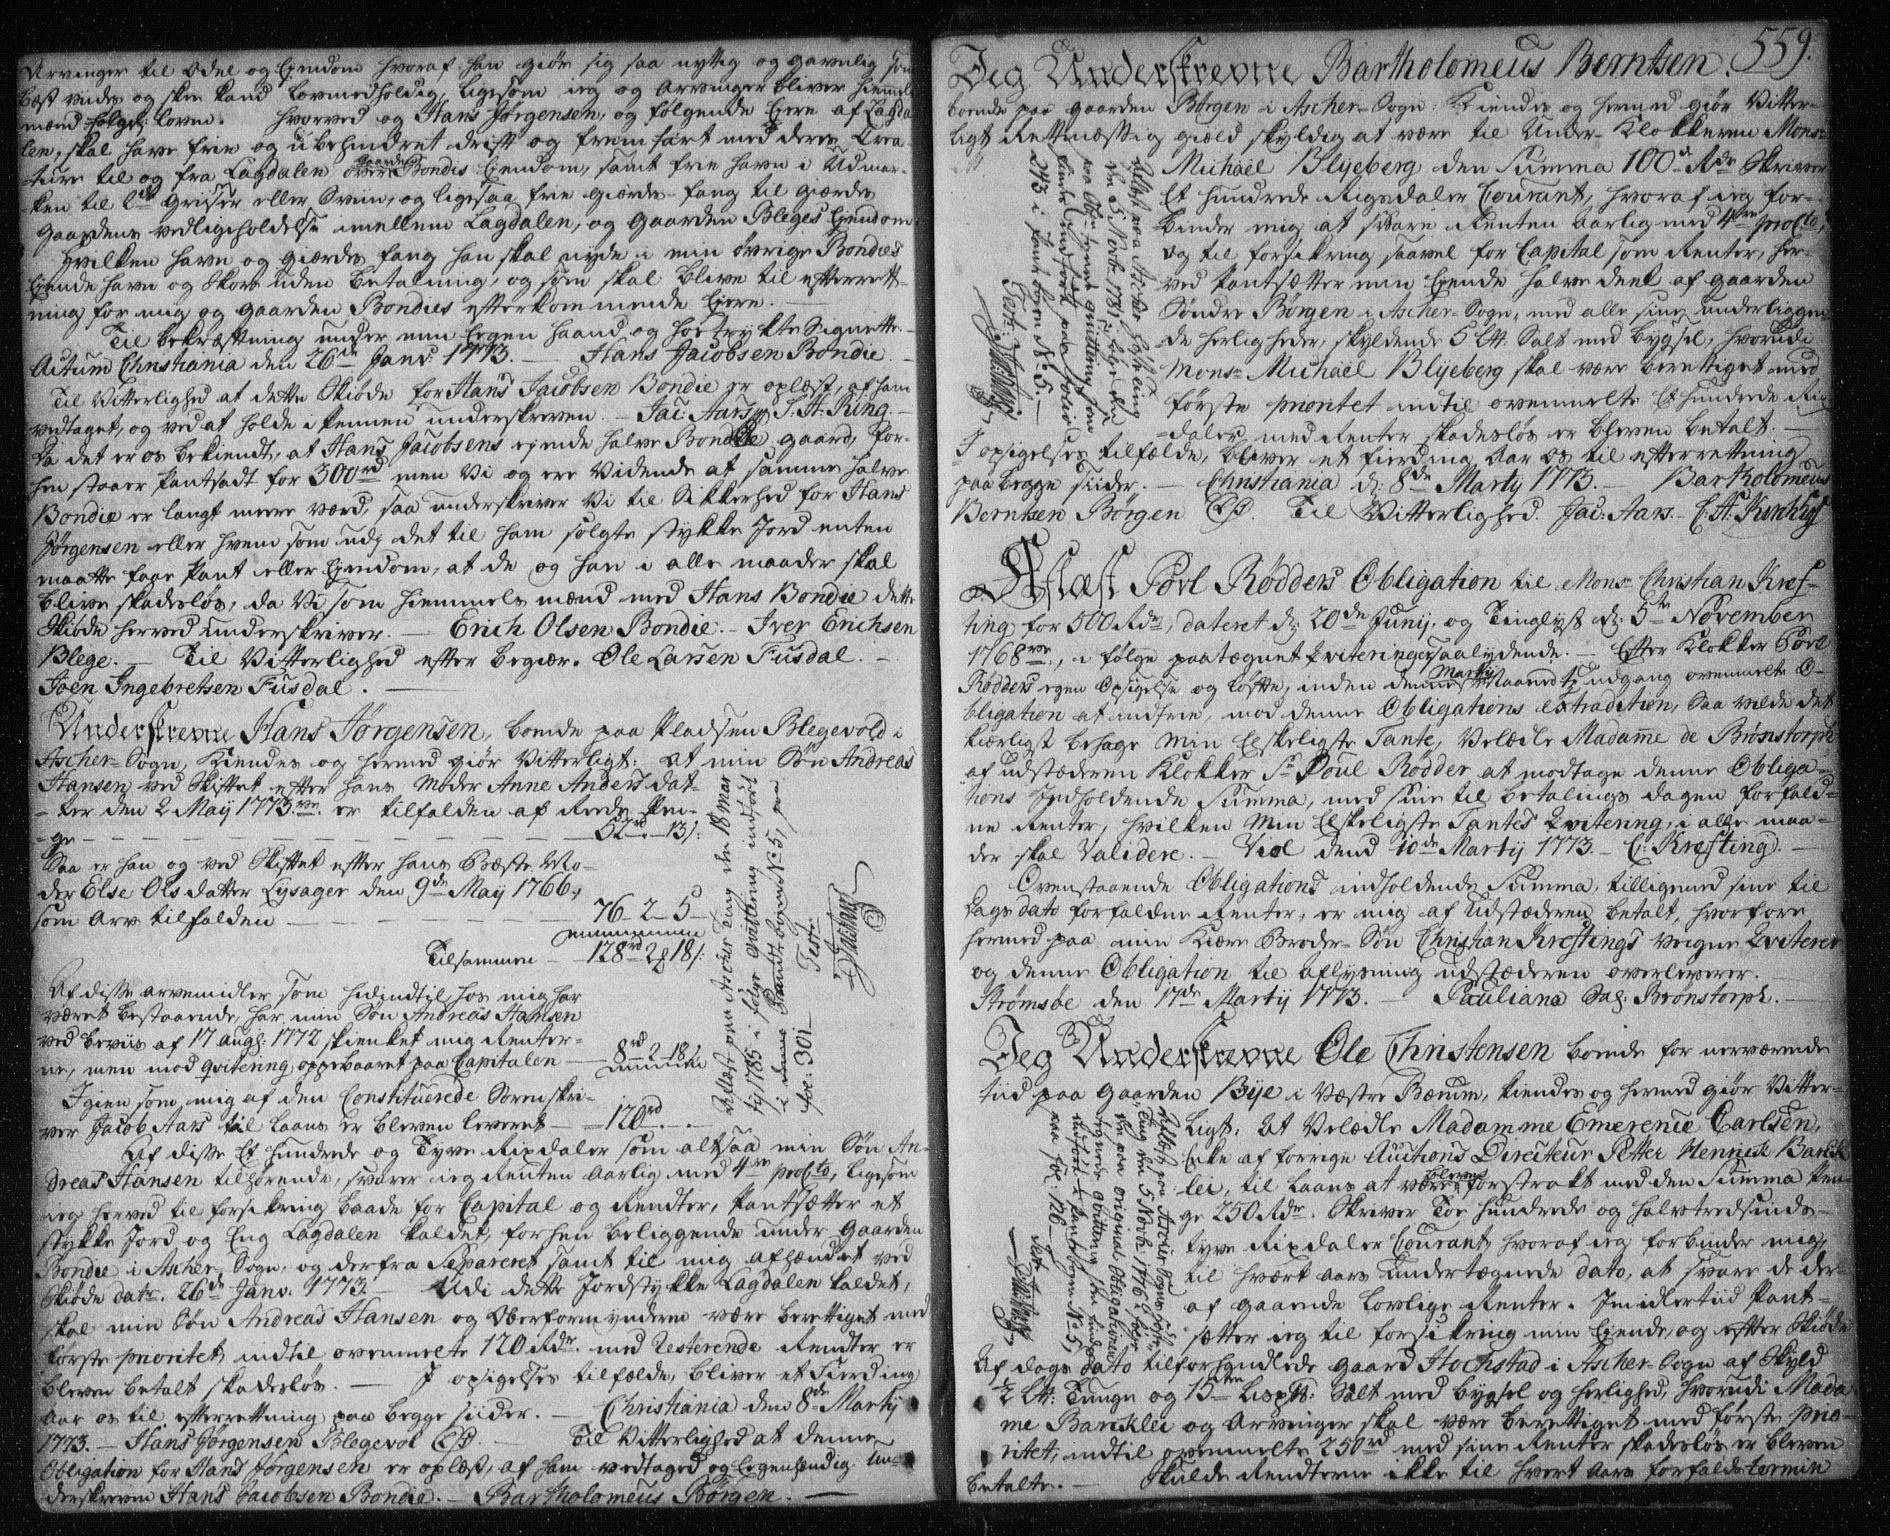 Arvinger til Odel og Ejendom hvoraf han giør sig saa nyttig og gavnlig som
best vides og skee kand lovmedholdig, ligesom ieg og Arvinger bliver hiemmels
mænd følgel: loven. Hvorved og Hans Jørgensen, og følgende Eiere af Lagda-
len, skal have frie og ubehindret drift og fremfart med deres Crea-
ture til og fra Lagdalen over Gaarden Bondis Ejendom, samt frie havn i Udmar-
ken til 2de Griser eller Sviin, og ligesaa frie giærde-fang til giærde
Gaardens vedligeholdelse imellem Lagdalen, og Gaarden Bleges Ejendom.
Hvilken havn og giærdes fang han skal nyde i min øvrige Bondies
Ejende havn og Skov uden betaling, og som skal blive til efterrett-
ning for mig og gaarden Bondies efterkommende Eiere.
Til bekræftning under min Egen haand og hostrykte Signette.
Actum Christiania den 26de Janv: 1773. Hans Jacobsen Bondie.
Til Vitterlighed at dette Skiøde for Hans Jacobsen Bondie er oplæst, af ham
vedtaget, og ved at holde i Pennen underskreven. Jac: Aars. S. H. Ring.
Da det er os bekiendt, at Hans Jacobsens ejende halve Bondie gaard, for-
hen staaer Pantsadt for 300 rd men Vi og ere Vidende at samme halve
Bondie er langt meere værd, saa underskriver Vi til Sikkerhed for Hans
Jørgensen eller hvem som udj det til ham solgte stykke Jord enten
maatte faae Pant eller Ejendom, at de og han i alle maader skal
blive skadesløs, da Vi som hiemmels mænd med Hans Bondie dette
Skiøde herved underskriver. Erich Olsen Bondie. Iver Erichsen
Blege. Til Vitterlighed efter begiær. Ole Larsen Fusdal.
Joen Ingebretsen Fusdal.
Underskrevne Hans Jørgensen, boende paa Pladsen Blegevold i
Ascher-Sogn, Kiendes og hermed giør Vitterligt: at min Søn Andreas
Hansen ved Skiftet efter hans Moder Anne Andersdat-
ter den 2 May 1773 er tilfalden af Rede Pen-
ge 52 rd - 13 s:
Saa er han og ved Skiftet efter hans Bæste Mo-
der Else Olsdatter Lysager den 9de May 1766,
som Arv tilfalden 76 - 2 - 5
Tilsammen 128 rd 2 18 s:
Af disse arvemidler, som hidindtil hos mig har
været bestaaende, har min Søn Andreas Hansen
ved beviis af 17 Aug: 1772 skienket mig Renter-
ne, men mod qvitering oppebaaret paa Capitalen 8 rd 2 18 s
Igien som mig af den Constituerede Sorenskri-
ver Jacob Aars til Laans er bleven leveret 120 rd
Af disse Et hundrede og Tyve Rixdaler som altsaa min Søn An-
dreas Hansen tilhørende, svarer ieg Renten aarlig med 4re pro Cto, ligesom
ieg herved til forsikring baade for Capital og Rendter, Pantsætter et
stykke Jord og Eng Lagdalen kaldet, forhen beliggende under Gaarden
Bondie i Ascher Sogn, og derfra Separeret samt til mig afhændet ved
Skiøde dat: 26de Janv: 1773. Udi dette Jordstykke Lagdalen kaldet,
skal min Søn Andreas Hansen og Overformynderen være berettiget med
første prioritet, indtil ovenmelte 120 Rdr. med resterende Rendter er
bleven betalt skadesløs. I opsigelses tilfælde, bliver et Fierding
Aar os til efterretning paa begge siider. Christiania den 8de Martij
1773. Hans Jørgensen Blegevol Til Vitterlighed at denne
Obligation for Hans Jørgensen er oplæst, af ham vedtaged og Egenhendig un-
derskreven Hans Jacobsen Bondie. Bartholomeus Børgen.
Aflæst paa Ascher Ting den 18 Mar
tj 1785 i følge Qvittering indført
i denne Pandtebogens No 5, paa
foe: 301. Test:
559.
Jeg Underskrevne Bartholomeus Berntsen.
boende paa gaarden Børgen i Ascher-Sogn: Kiendes og hermed giør Vitter-
ligt Rettmæssig gield skyldig at være til Under-Klokkeren Mons:
Michael Blyeberg den Summa 100 Rdr Skriver
Et hundrede Rigsdaler Courant, hvoraf ieg for-
binder mig at svare Renten aarlig med 4re pro Cto,
og til forsikring saavel for Capital som Renter, her-
ved Pantsætter min Ejende halve deel af gaarden
Søndre Børgen i Ascher-Sogn, med alle sine underliggen-
de herligheder, skyldende 5 Lt. Salt med bygsel, hvorudi
Mons: Michael Blyeberg skal være berettiget med
første prioritet indtil ovenmelte Et hundrede Rix-
daler med Renter skadesløs er bleven betalt.
I opsigelses tilfælde, bliver et fierding Aar os til efterretning
paa begge siider. Christiania d: 8de Martij 1773. Bartholomeus
Berntsen Børgen Til Vitterlighed. Jac: Aars.
Aflæst paa Ascher Høste Ting
den 5 Novbr. 1781 i følge den
paa Obl: tegnede qvittering, som
findes indført paa Folio
293 i Pantebogen No 5.
Test:
Aflæst Povl Rødders Obligation til Mons: Christian Kref-
ting for 500 Rdr, dateret d: 20de Junij og Tinglyst d: 5te November
1768, i følge paategnet Qviteringer saalydende. Efter Klokker Povl
Rødders egen Opsigelse og løfte, inden denne Martij maaned udgang ovenmelte O-
bligation at indfrie, mod denne Obligations Extradition, Saa vilde det
kierligst behage Min Elskeligste Tante, Velædle Madamme de Brønstorph
af udstæderen Klokker Sr Poul Rødder at modtage denne Obliga-
tions Indholdende Summa, med sine til betalings dagen forfald-
ne Renter, hvilken Min Elskeligste Tantes Qvitering, i alle maa-
der skal Validere. Viol dend 10de Martij 1773. C: Krefting.
Ovenstaaende Obligations indholdende Summa, tilligemed sine til
Dags dato forfaldne Renter, er mig af Udstæderen betalt, hvorfore
hermed paa min Kiære Broder-Søn Christian Kreftings vegne Qviterer
og denne Obligation til aflysning udstæderen overleverer.
Strømsøe den 17de Martij 1773. Pauliana Sal: Brønstorph.
Jeg Underskrevne Ole Christensen boende for nerværende
tiid paa Gaarden Bye i Vestre Bærum, kiendes og hermed giør Vitter-
ligt; At Velædle Madamme Emerence Carlsen,
Enke af forrige Auctions Directeur Petter Hennich Barck-
lei, til Laans at være bleven forstrakt med den Summa Pen-
ge 250 Rdr. Skriver Toe hundrede og halvtredsinds-
tyve Rixdaler Courant, hvoraf ieg forbinder mig,
til hvert Aars Undertegnede dato, at svare de der-
af gaaende lovlige Renter. Imidlertiid Pant-
sætter ieg til forsikring min Ejende, og efter Skiøde
Af dags dato tilforhandlede gaard Hochstad i Ascher-Sogn af Skyld
½ Lt: Tunge og 15ten Lispd: Salt med bygsel og herlighed, hvorudi Mada
me Barcklei og Arvinger skal være berettiget med første prio-
ritet, indtil ovenmelte 250 rd med sine Renter skadesløs er bleven
betalte. Skulde Rendterne ikke til hvert Aars forfalds termin
Aflæst paa Ascher
Ting den 5 Novbr: 1776 i følge
den paa Original Obligationen
tegnede Qvittering som findes
indført i Pantebogen No 5,
paa foe: 126. Test